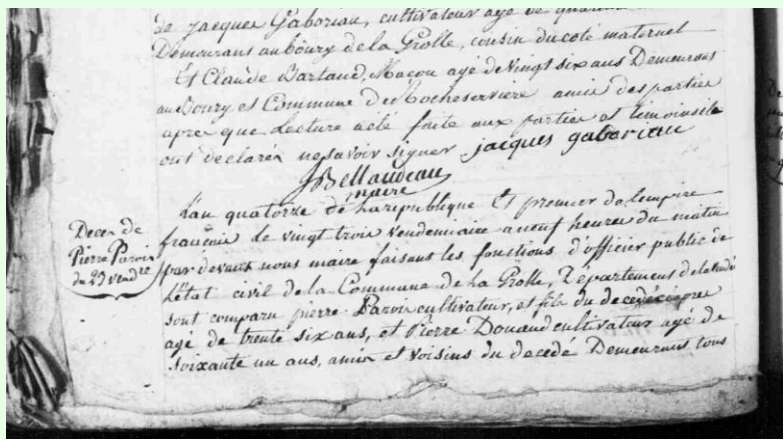 de jacques Gaboriau, cultivateur agé de quarante
Demeurans au bourg de la Grolle, cousin du coté maternel
Et Claude Bartaud, Maçon agé de vingt six ans Demeurans
au Bourg et Commune de Rocheserviere amis des parties
apre que Lecture a été faite aux parties et temoins ils
ont declarén ne savoir signer jacques gaboriau
JBellaudeau
maire
Deces de
Pierre Parois
du 23 vendre
L'an quatorze de la republique Et premier de L'empire
français le vingt trois vendemiaire a neuf heures du matin
par devant nous maire faisant les fonctions d'officier public de
L'état civil de la Commune de la Grolle, Departement de la
sont comparu pierre Parois cultivateur, et fils du decedé ciapres
agé de trente six ans, et Pierre Douaud cultivateur agé de
soixante un ans, amis et voisins du decedé Demeurans tous